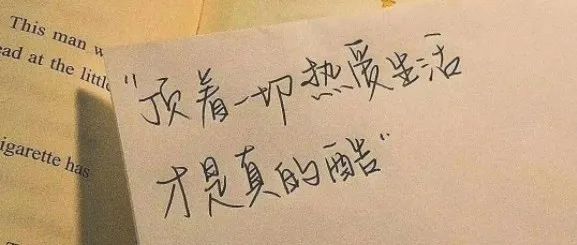 This man w
ead at the little
igarette has
"顶着一切热爱生活
才是真的酷"